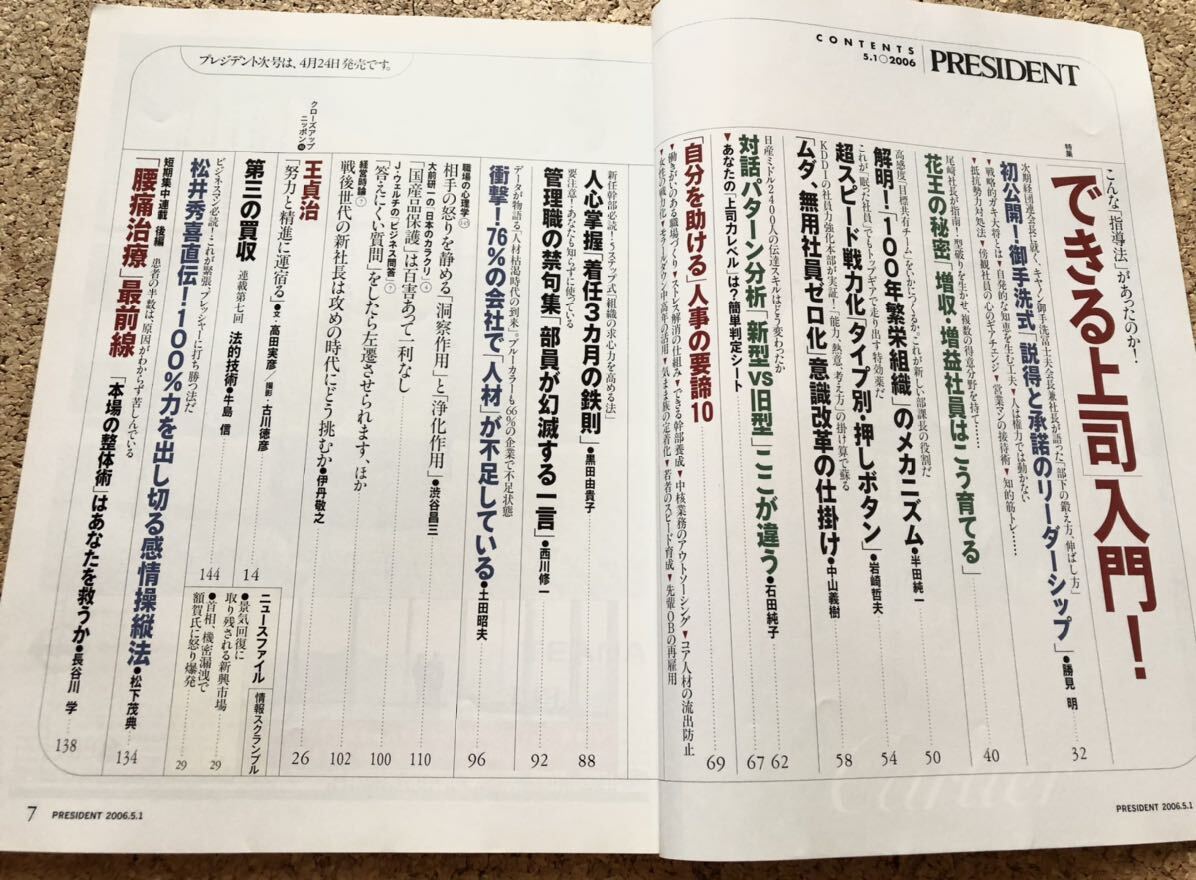 CONTENTS
5.1○2006
PRESIDENT
特集
こんな「指導法」があったのか!
「できる上司」入門!
次期経団連会長に就く、キヤノン御手洗冨士夫会長兼社長が語った「部下の鍛え方、伸ばし方」
初公開!御手洗式「説得と承諾のリーダーシップ」●勝見 明
32
▼戦略的ガキ大将とは▼自発的な知恵を生む工夫▼人は権力では動かない
▼抵抗勢力対処法▼傍観社員の心のギアチェンジ▼営業マンの接待術▼知的筋トレ……
40
尾崎社長が指南!型破りを生かせ、複数の得意分野を持て……
花王の秘密「増収・増益社員はこう育てる」
50
高感度「目標共有チーム」をいかにつくるか。これが新しい部課長の役割だ
解明!「100年繁栄組織」のメカニズム●半田純一
54
これが「眠った社員」でもトップギアで走り出す特効薬だ
超スピード戦力化「タイプ別・押しボタン」●岩崎哲夫
58
KDDIの社員力強化本部が実証!「能力、熱意、考え方」の掛け算で蘇る
「ムダ、無用社員ゼロ化」意識改革の仕掛け●中山義樹
日産ミドル2400人の伝達スキルはどう変わったか
対話パターン分析「新型vs旧型」ここが違う●石田純子
62
▼あなたの「上司力レベル」は?簡単判定シート
67
「自分を助ける」人事の要諦10
69
▼働きがいのある職場づくり▼ストレス解消の仕組み▼できる幹部養成▼中核業務のアウトソーシング▼コア人材の流出防止
▼女性の戦力化▼モラールダウン中高年の活用▼気まま族の定着化▼若者のスピード育成▼先輩OBの再雇用
PRESIDENT 2006.5.1
プレジデント次号は、4月24日発売です。
新任幹部必読!5ステップ式「組織の求心力を高める法」
人心掌握「着任3カ月の鉄則」●黒田由貴子
88
要注意!あなたも知らずに使っている
管理職の禁句集「部員が幻滅する一言」●西川修一
92
データが物語る「人材枯渇時代の到来」。ブルーカラーも66%の企業で不足状態
衝撃!76%の会社で「人材」が不足している●土田昭夫
96
職場の心理学
相手の怒りを静める「洞察作用」と「浄化作用」●渋谷昌三
110
大前研一の「日本のカラクリ」④
「国産品保護」は百害あって一利なし
J・ウェルチの「ビジネス問答」⑦
「答えにくい質問」をしたら左遷させられます、ほか
100
経営時論⑦
戦後世代の新社長は攻めの時代にどう挑むか●伊丹敬之
102
クローズアップ
ニッポン
王貞治
「努力と精進に運宿る」●文・高田実彦/撮影・古川徳彦
26
第三の買収 連載第七回 法的技術●牛島 信
14
144
ビジネスマン必読!これが緊張、プレッシャーに打ち勝つ法だ
松井秀喜直伝!100%力を出し切る感情操縦法●松下茂典
134
短期集中連載 後編 患者の半数は、原因がわからず苦しんでいる
「腰痛治療」最前線 「本場の整体術」はあなたを救うか●長谷川 学
138
ニュースファイル
情報スクランブル
●景気回復に
取り残される新興市場
29
●首相、機密漏洩で
額賀氏に怒り爆発
29
7
PRESIDENT 2006.5.1